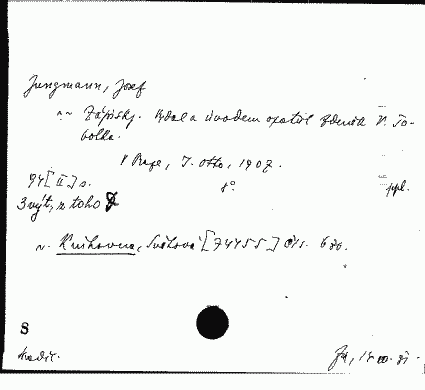 Jungmann, Josef
~ Zápisky. Vydal a úvodem opatřil Zdeněk V. To-
bolka.
V Praze, J. Otto, 1907.
94 [II] s. 8° ppl.
3 výt., z toho
v. Knihovna, Světová [74455] čís. 
S